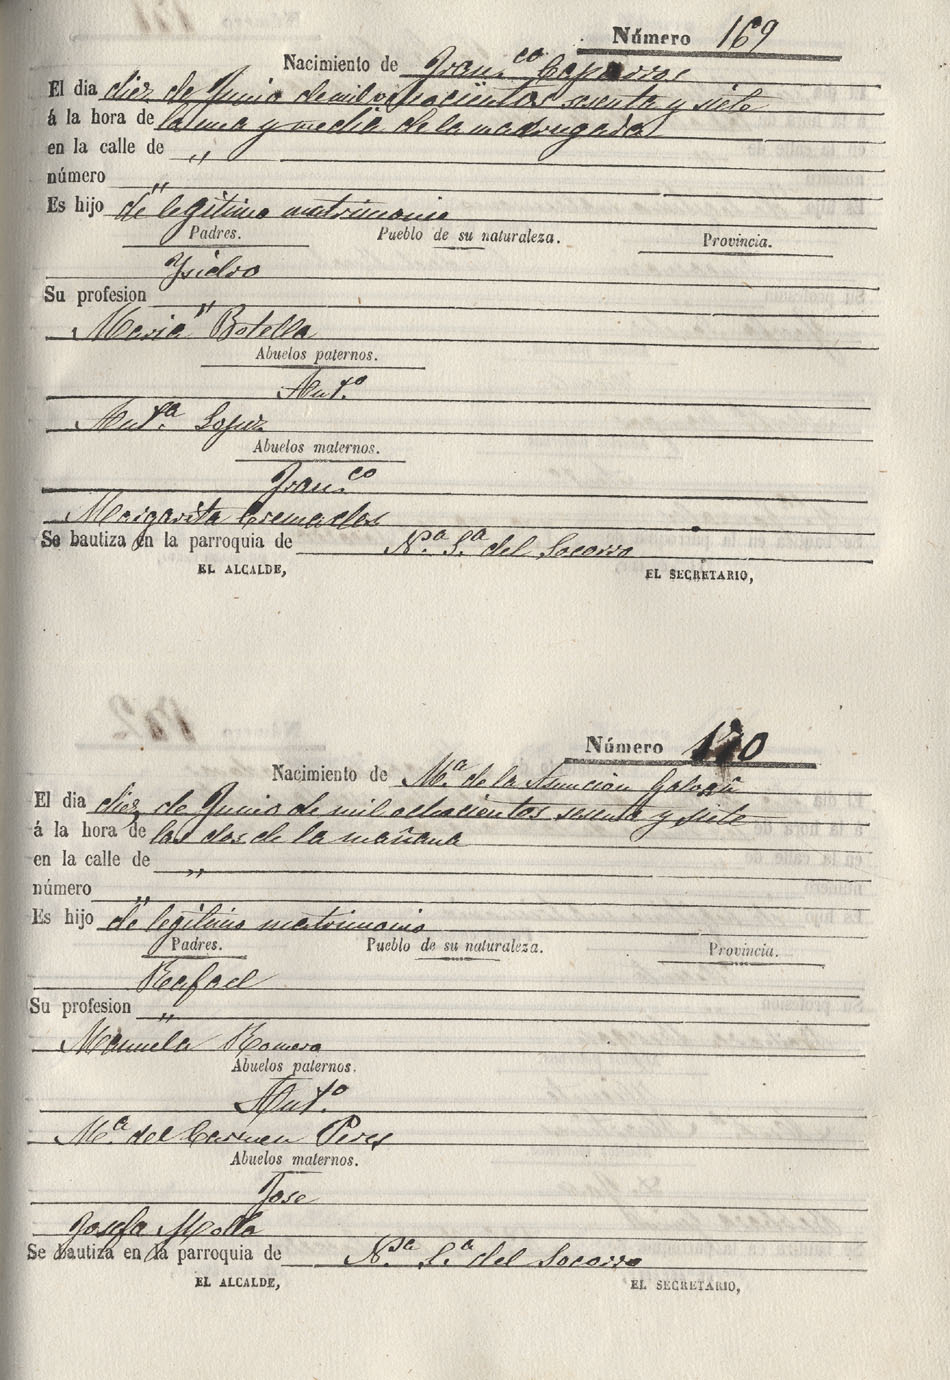 Número 169
Nacimiento de Fran.co Caparros
El dia diez de Junio de mil ochocientos sesenta y siete
á la hora de la una y media de la madrugada
en la calle de "
número "
Es hijo de legitimo matrimonio
Padres. Pueblo de su naturaleza. Provincia.
Ysidro
Su profesion "
Maria Botella
Abuelos paternos.
Ant.o
Ant.a Lopez
Abuelos maternos.
Fran.co
Margarita Cremades
Se bautiza en la parroquia de N.a S.a del Socorro
EL ALCALDE, EL SECRETARIO,
Número 170
Nacimiento de M.a de la Asuncion
El dia diez de Junio de mil ochocientos sesenta y siete
á la hora de las dos de la mañana
en la calle de "
número "
Es hijo de legitimo matrimonio
Padres. Pueblo de su naturaleza. Provincia.
Rafael
Su profesion "
Manuela Romero
Abuelos paternos.
Ant.o
M.a del Carmen Peres
Abuelos maternos.
Jose
Josefa Molla
Se bautiza en la parroquia de N.sa S.a del Socorro
EL ALCALDE, EL SECRETARIO,